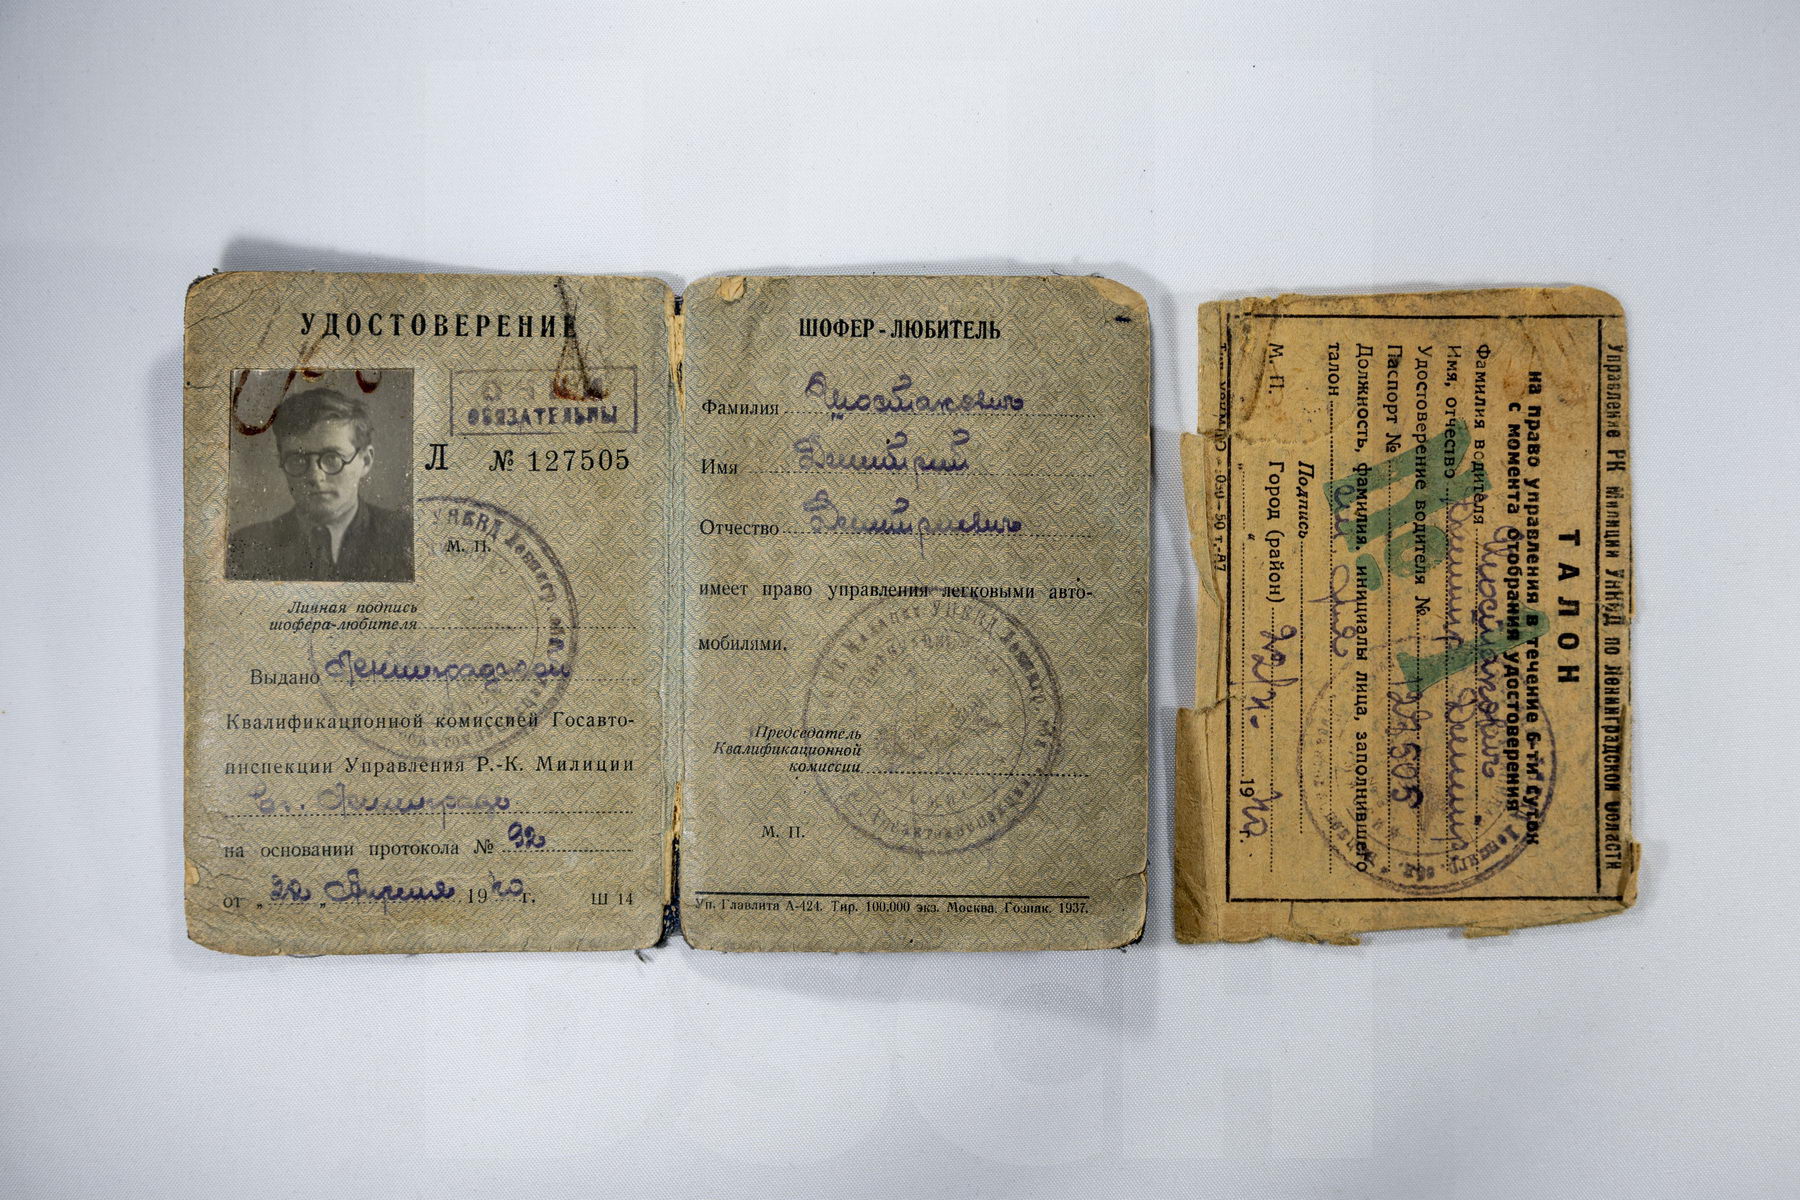 УДОСТОВЕРЕНИЕ
ОЧКИ
ОБЯЗАТЕЛЬНЫ
Л № 127505
М. П.
Личная подпись
шофера-любителя
Выдано Ленинградской
Квалификационной комиссией Госавто-
инспекции Управления Р.-К. Милиции
гор. Ленинграда
на основании протокола № 92
от „22„ Апреля 1940г. Ш 14
ШОФЕР-ЛЮБИТЕЛЬ
Фамилия Шостакович
Имя Дмитрий
Отчество Дмитриевич
имеет право управления легковыми авто-
мобилями.
Председатель
Квалификационной
комиссии
М. П.
Уп. Главлита А-424. Тир. 100.000 экз. Москва. Гознак. 1937.
Управление РК Милиции УНКВД по Ленинградской области
ТАЛОН
на право управления в течение 6-ти суток
с момента отобрания удостоверения
Фамилия водителя Шостакович
Имя, отчество Дмитр. Дмитр.
Удостоверение водителя № 127505
Паспорт №
Должность, фамилия, инициалы лица, заполнившего
талон
Подпись
М. П. Город (район) 19 40г.